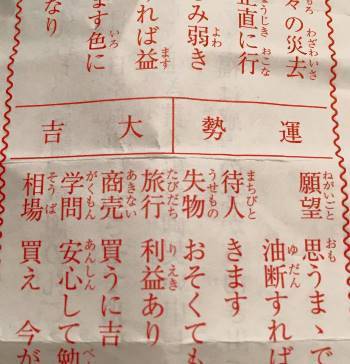 々の災去
もろ わざわいさ
正直に行
うじき おこな
み弱き
よわ
れば益
ます
ます色に
いろ
なり
運勢
大吉
願望 思うまゝで
ねがいごと おも
油断すれば
ゆだん
待人 きます
まちびと
失物 おそくても
うせもの
旅行 利益あり
たびだち りえき
商売 買うに吉
あきない
学問 安心して勉
がくもん あんしん べ
相場 買え 今が
そうば